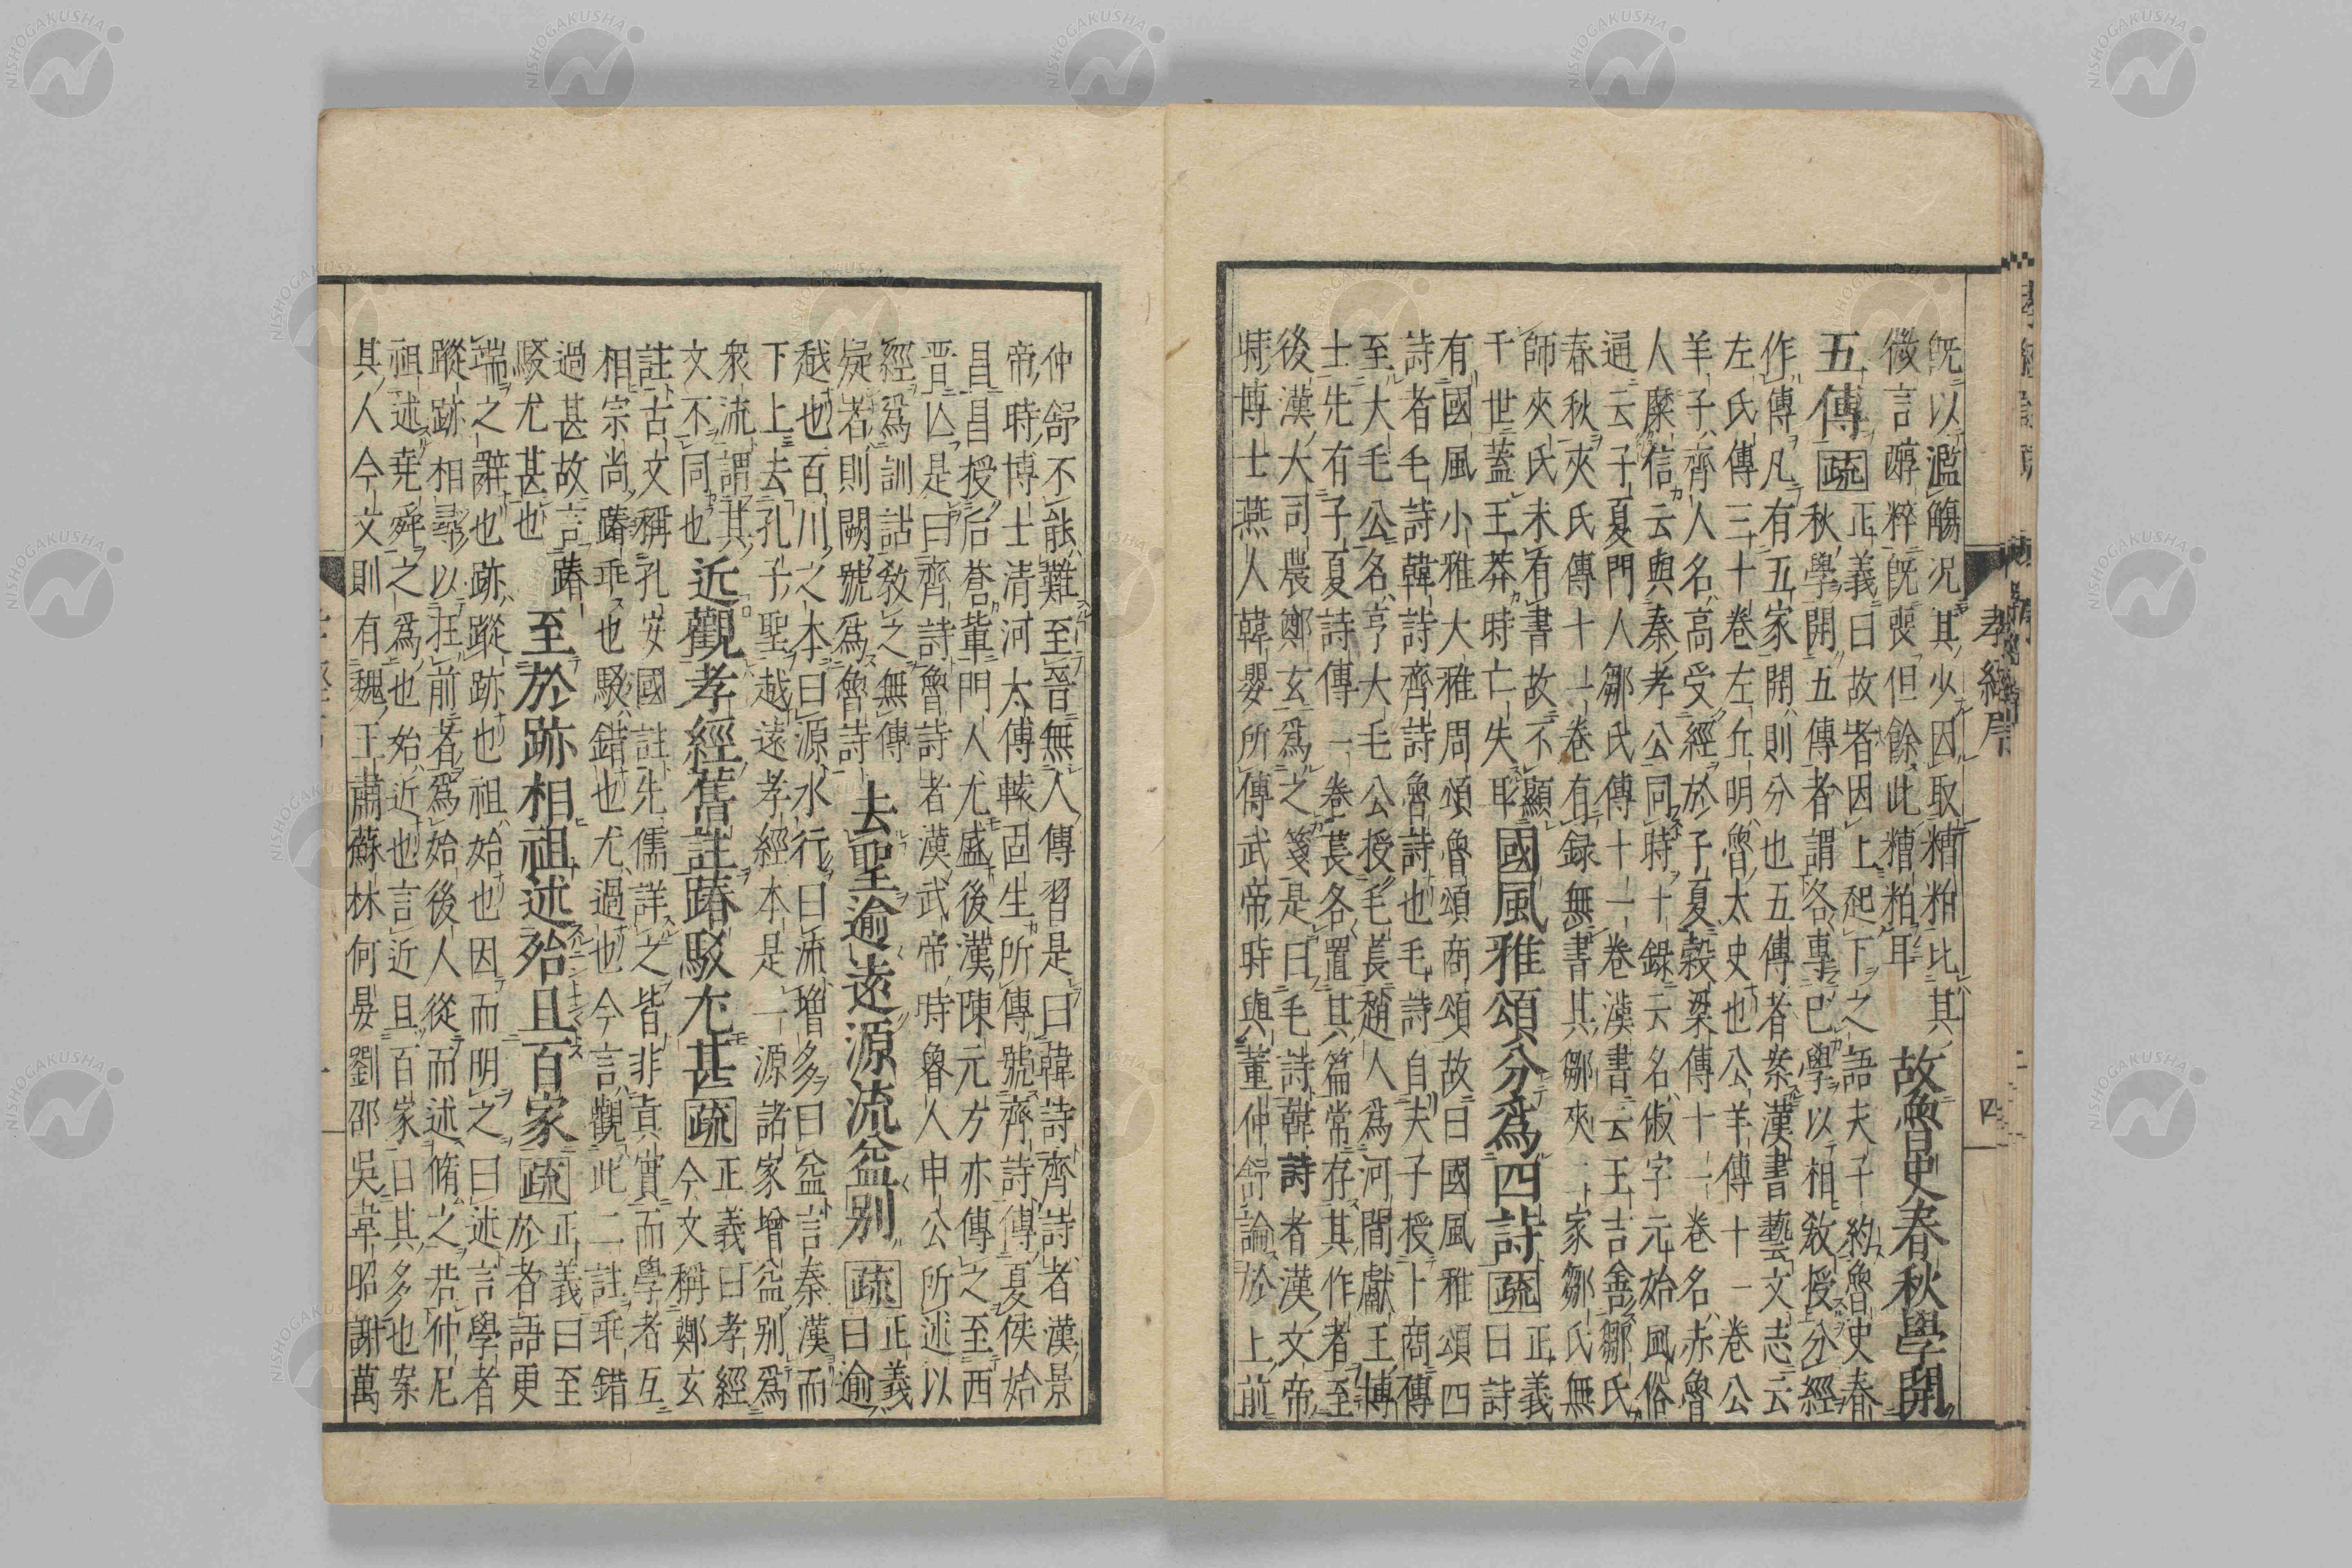 孝經序 四
既以濫觴況其少因取糟粕比其
微言醇粹既喪但餘此糟粕耳
故魯史春秋學開
五傳疏
正義曰故者因上起下之語夫子約魯史春
秋學開五傳者謂各專巳學以相敎授分經
作傳凡有五家開則分也五傳者案漢書藝文志云
左氏傳三十卷左丘明魯太史也公羊傳十一卷公
羊子齊人名高受經於子夏穀梁傳十一卷名赤魯
人糜信云與秦孝公同時十錄云名俶字元始風俗
通云子夏門人鄒氏傳十一卷漢書云王吉善鄒氏
春秋夾氏傳十一卷有録無書其鄒夾二家鄒氏無
師夾氏未有書故不顯
千世蓋王莽時亡失耳
國風雅頌分爲四詩疏
正義
曰詩
有國風小雅大雅周頌魯頌商頌故曰國風雅頌四
詩者毛詩韓詩齊詩魯詩也毛詩自夫子授卜商傳
至大毛公名亨大毛公授毛萇趙人爲河間獻王博
士先有子夏詩傳一卷萇各置其篇常存其作者至
後漢大司農鄭玄爲之箋是曰毛詩韓詩者漢文帝
時博士燕人韓嬰所傳武帝時與董仲舒論於上前
仲舒不能難至晉無人傳習是曰韓詩齊詩者漢景
帝時博士清河太傅轅固生所傳號齊詩傳夏侯始
昌昌授后蒼輩門人尤盛後漢陳元方亦傳之至西
晉亾是曰齊詩魯詩者漢武帝時魯人申公所述以
經爲訓詁敎之無傳
疑者則闕號爲魯詩
去聖逾遠源流益別疏
正義
曰逾
越也百川之本曰源水行曰流增多曰益言秦漢而
下上去孔子聖越遠孝經本是一源諸家增益別爲
衆流謂其
文不同也
近觀孝經舊註踳駁尤甚疏
正義曰孝經
今文稱鄭玄
註古文稱孔安國註先儒詳之皆非真實而學者互
相宗尚踳乖也駁錯也尤過也今言觀此二註乖錯
過甚故言踳
駁尤甚也
至於跡相祖述殆且百家疏
正義曰至
於者語更
端之辭也跡蹤跡也祖始也因而明之曰述言學者
蹤跡相尋以在前者爲始後人從而述脩之若仲尼
祖述堯舜之爲也始近也言近且百家曰其多也案
其人今文則有魏王肅蘇林何晏劉邵吳韋昭謝萬